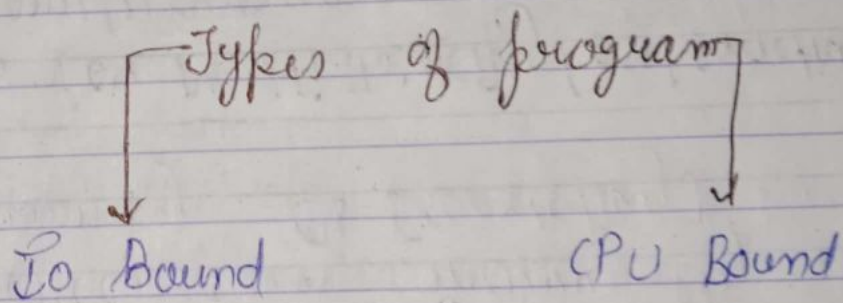 Types of program
Io Bound CPU Bound